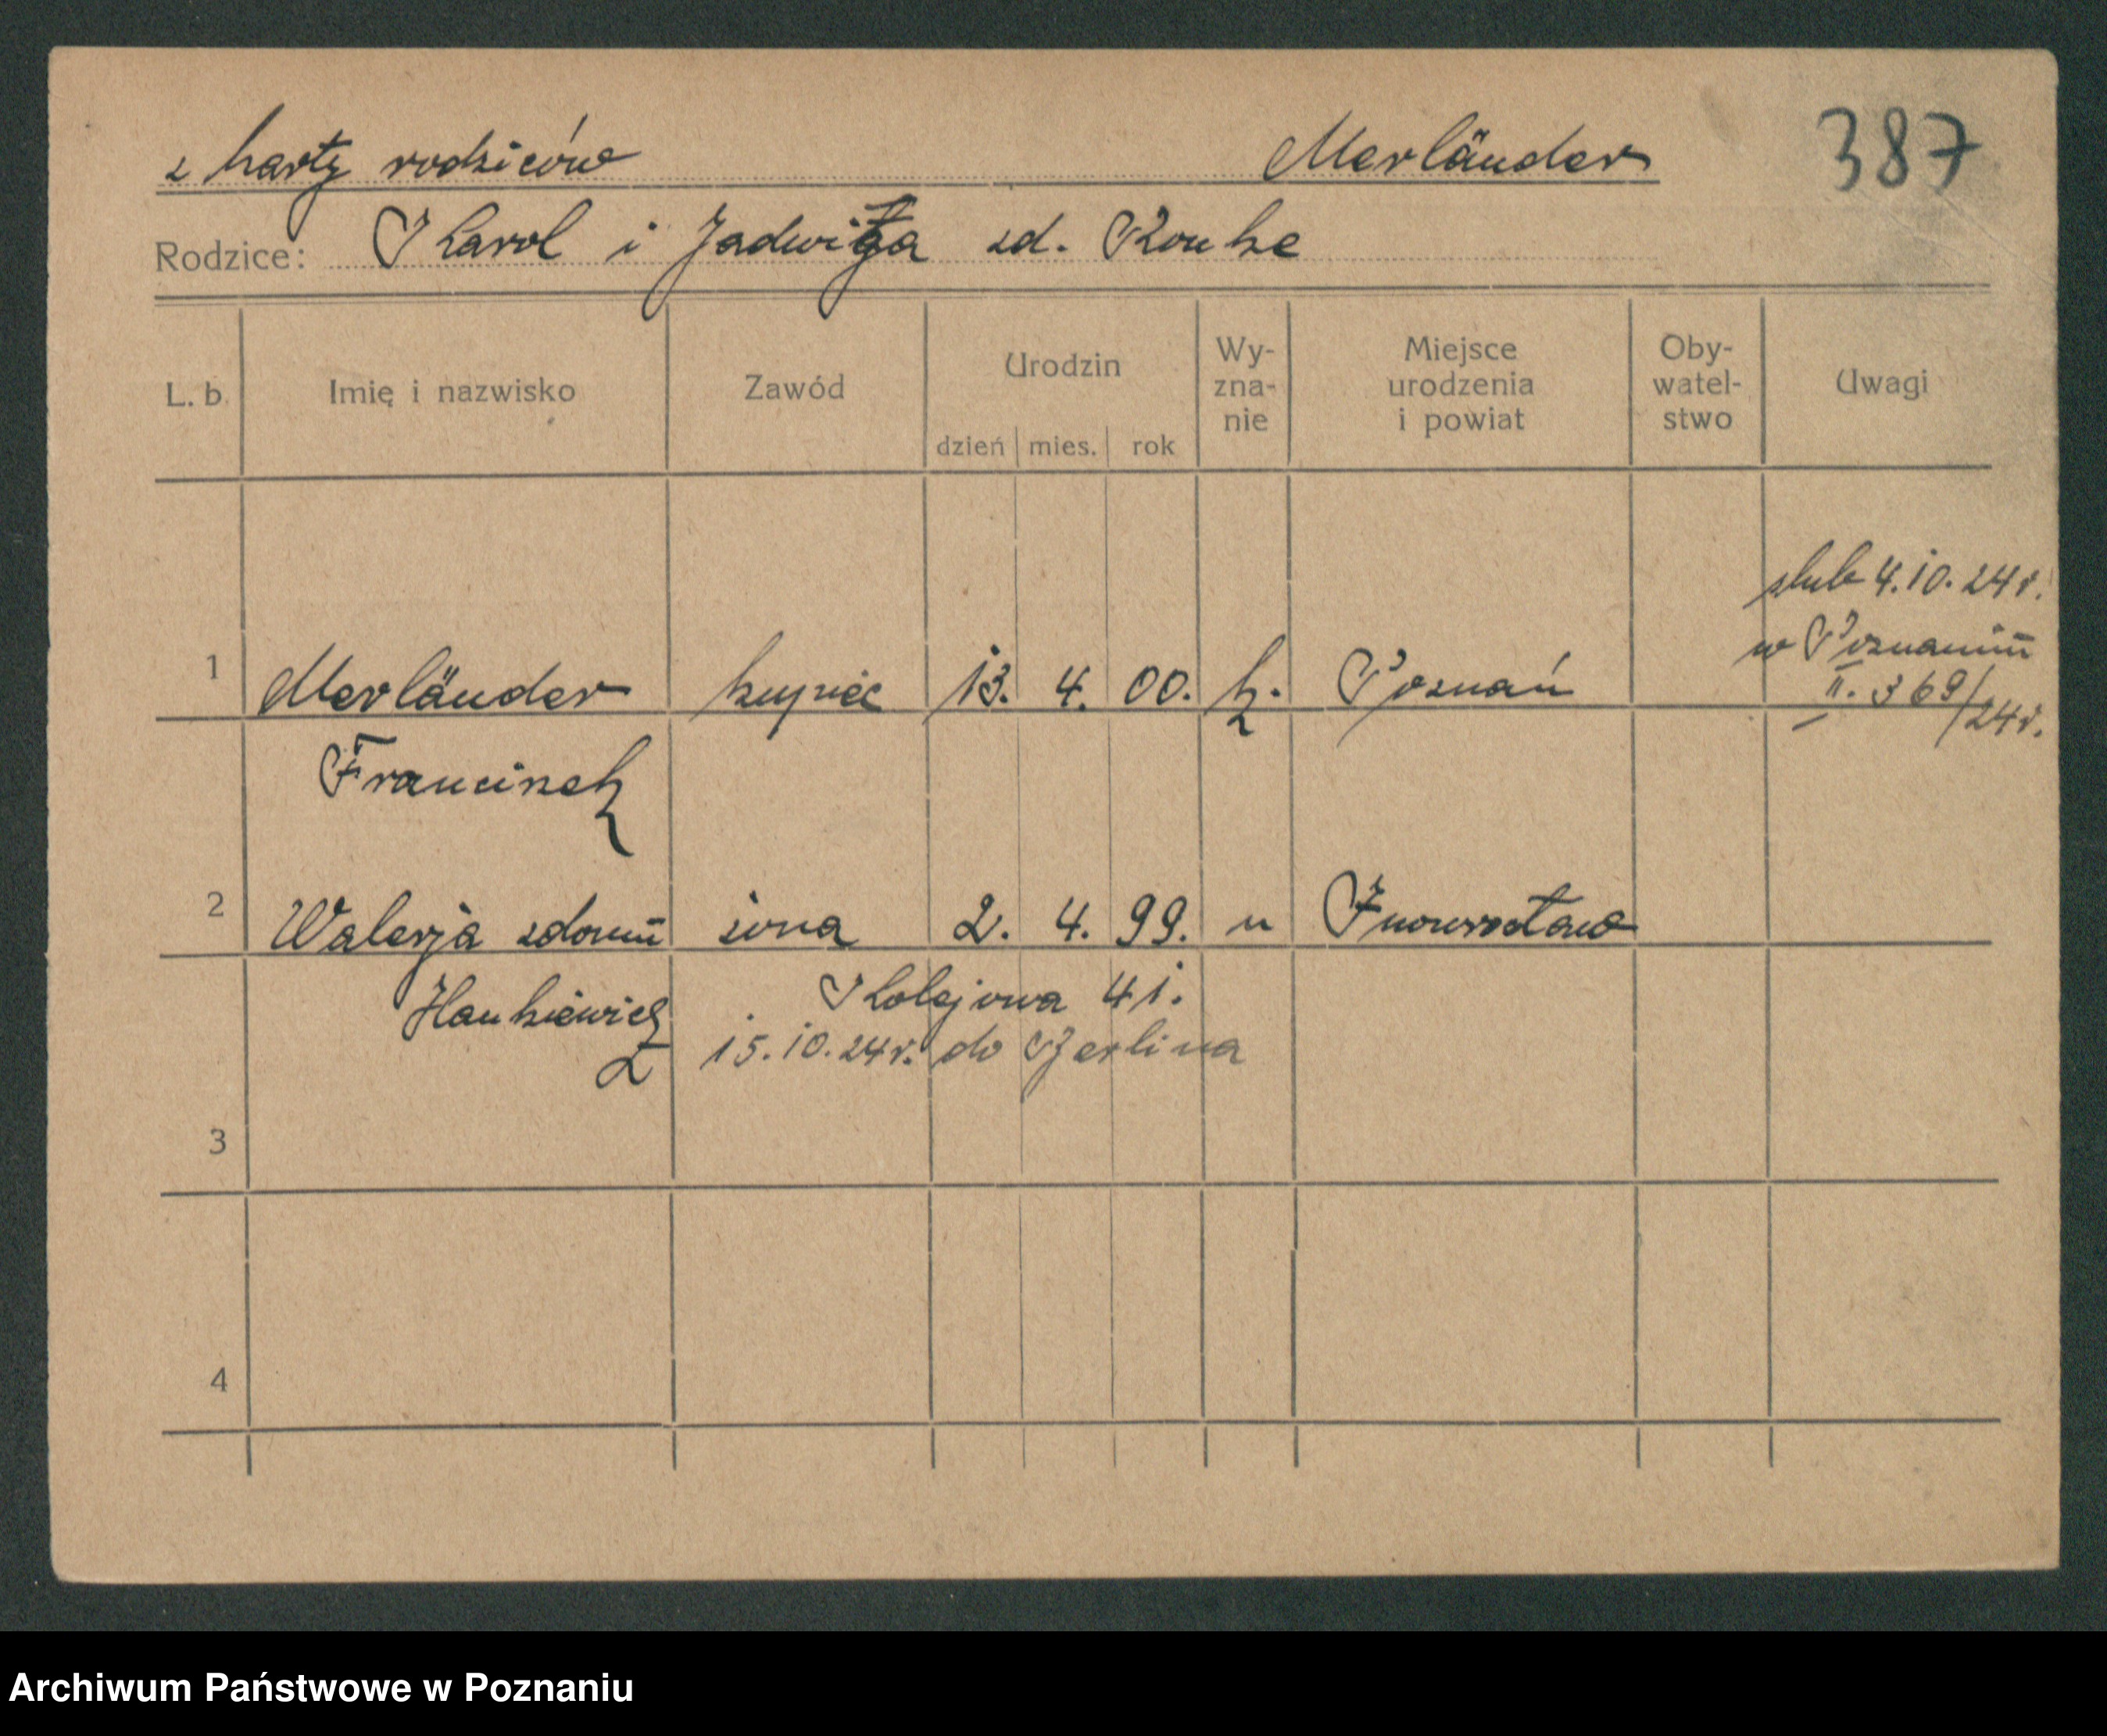 z karty rodziców Merländer 387
Rodzice: Karol i Jadwiga zd. Ronke
L. b. Imię i nazwisko Zawód Urodzin Wy- Miejsce Oby- Uwagi
zna- urodzenia watel-
nie i powiat stwo
dzień mies. rok
ślub 4.10.24r.
w Poznaniu
1 Merländer kupiec 13. 4. 00. k. Poznań II. 369/24r.
Franciszek
2 Walerja zdomu żona 2. 4. 99. " Inowrocław
Hankiewicz Kolejowa 41.
15.10.24r. do Berlina
3
4
Archiwum Państwowe w Poznaniu